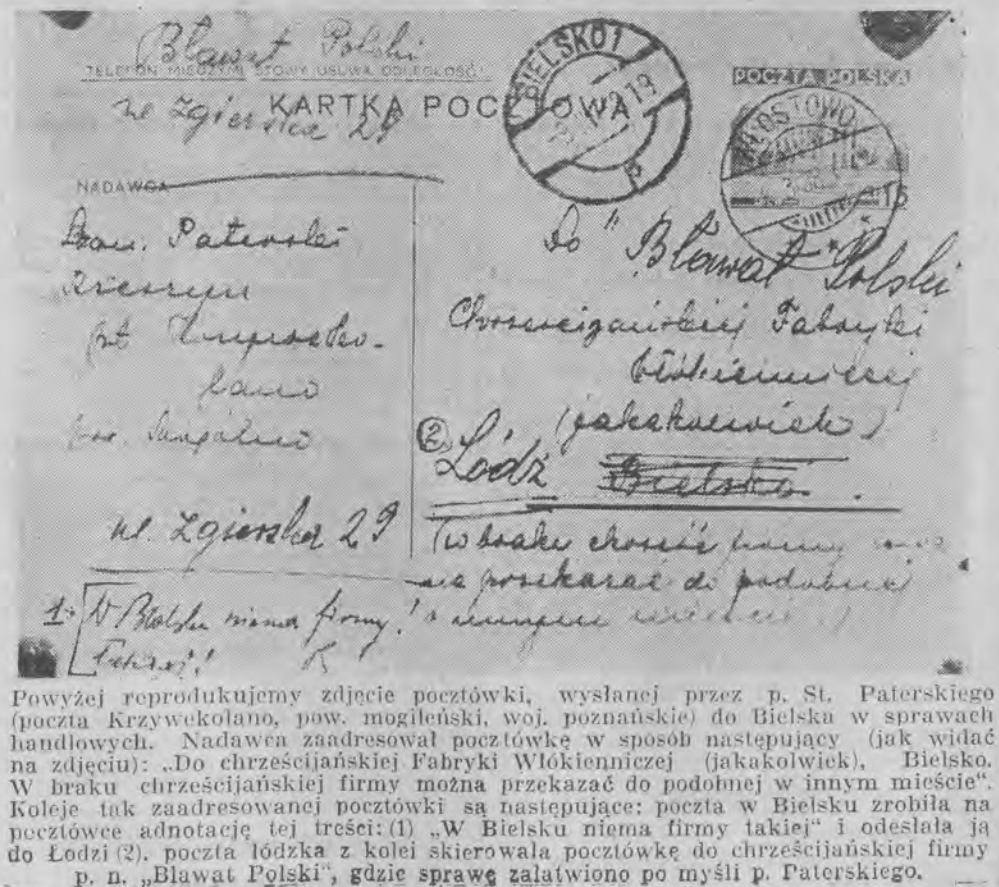 Bławat Polski
TELEFON MIĘDZYMIASTOWY USUWA ODLEGŁOŚĆ
KARTKA POCZTOWA
ul. Zgierska 29
BIELSKO 1
POCZTA POLSKA
15
NADAWCA
Do "Bławat Polski
Chrześcijańskiej Fabryki
Włókienniczej
(jakakolwiek)
2 Łódź Bielsko.
ul. Zgierska 29
(w braku chrześć firmy
przekazać do podobnej
w innym mieście)
1. W Bielsku niema firmy!
Powyżej reprodukujemy zdjęcie pocztówki, wysłanej przez p. St. Paterskiego
(poczta Krzywekolano, pow. mogileński, woj. poznańskie) do Bielska w sprawach
handlowych. Nadawca zaadresował pocztówkę w sposób następujący (jak widać
na zdjęciu): „Do chrześcijańskiej Fabryki Włókienniczej (jakakolwiek), Bielsko.
W braku chrześcijańskiej firmy można przekazać do podobnej w innym mieście“.
Koleje tak zaadresowanej pocztówki są następujące: poczta w Bielsku zrobiła na
pocztówce adnotację tej treści: (1) „W Bielsku niema firmy takiej“ i odesłała ją
do Łodzi (2), poczta łódzka z kolei skierowała pocztówkę do chrześcijańskiej firmy
p. n. „Bławat Polski“, gdzie sprawę załatwiono po myśli p. Paterskiego.